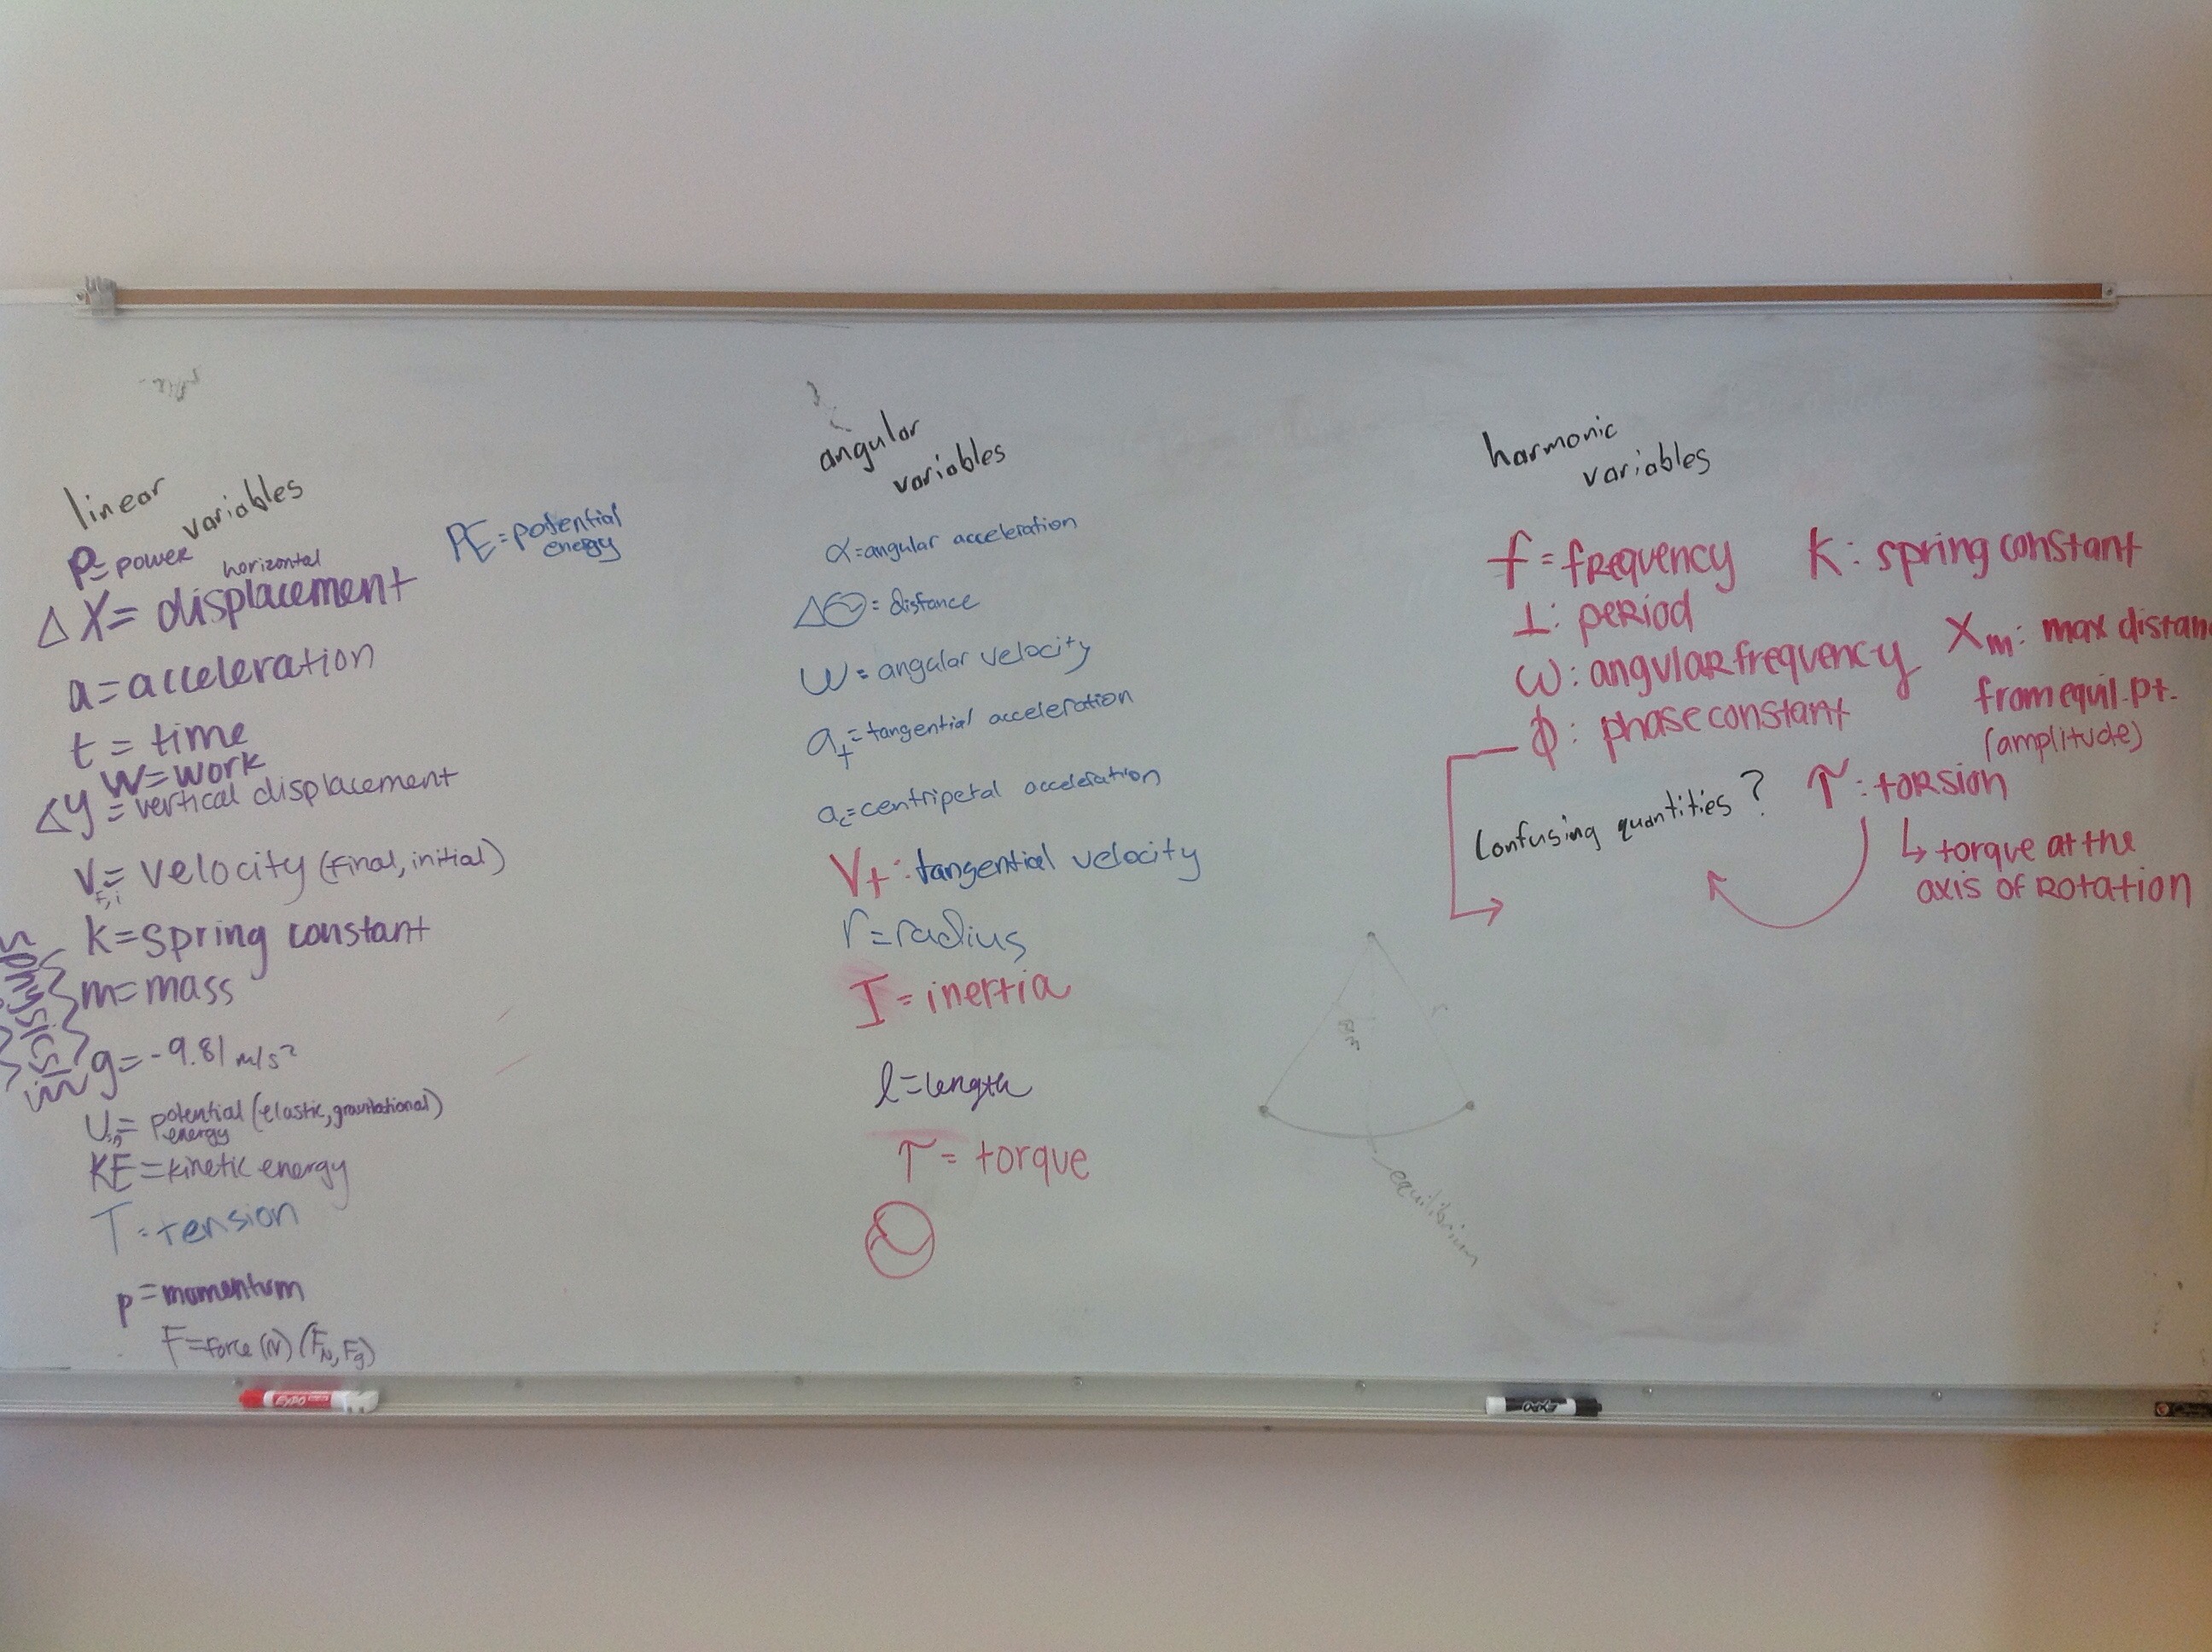 linear
variables
P=power
horizontal
ΔX= displacement
a=acceleration
t = time
W=work
Δy = vertical displacement
V_f,i = velocity (final, initial)
k=spring constant
m=mass
g=-9.81 m/s²
U_s,g = potential (elastic, gravitational)
energy
KE=kinetic energy
T=tension
p=momentum
F=force (N) (F_N, F_g)
physics!
PE=potential
energy
angular
variables
α=angular acceleration
ΔΘ=distance
ω=angular velocity
a_t=tangential acceleration
a_c=centripetal acceleration
V_t: tangential velocity
r=radius
I=inertia
l=length
τ= torque
harmonic
variables
f=frequency
T: period
ω: angular frequency
ϕ: phase constant
K: spring constant
X_m: max distan
from equil. pt.
(amplitude)
Confusing quantities?
τ: torsion
↳ torque at the
axis of rotation
r
equilibrium
EXPO
EXPO